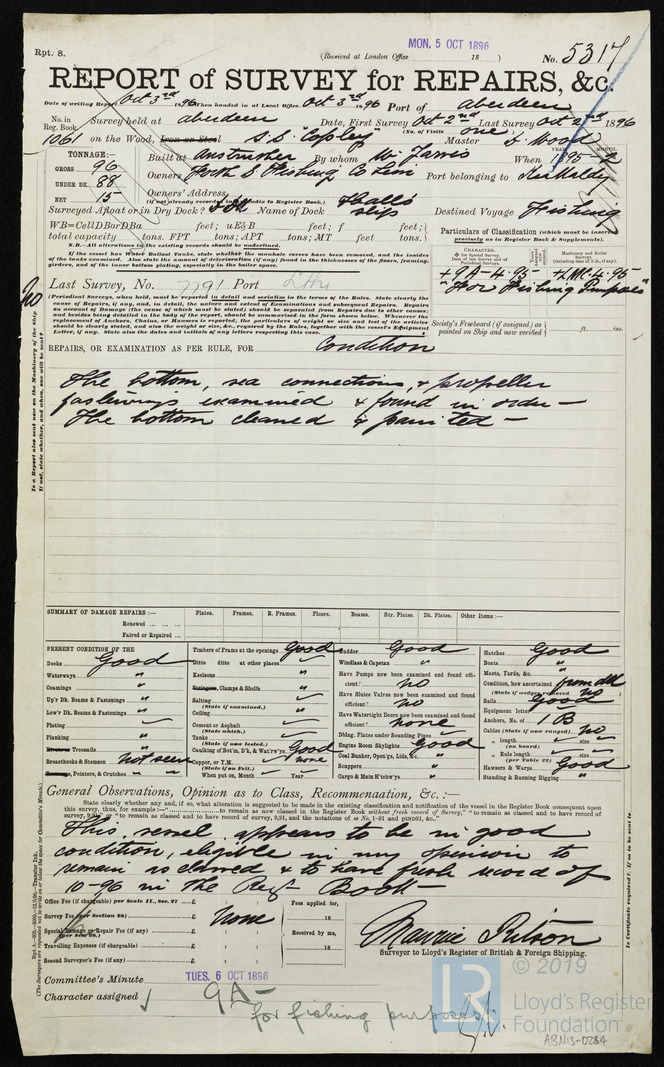 Rpt. 8.
MON. 5 OCT 1896
(Received at London Office 18 )
No. 5317
REPORT of SURVEY for REPAIRS, &c.
Date of writing Report Oct 3rd 1896 When handed in at Local Office Oct 3rd 1896 Port of Aberdeen
No. in Reg. Book Survey held at Aberdeen Date, First Survey Oct 2nd Last Survey Oct 2nd 1896
(No. of Visits one)
1061 on the Wood, Iron or Steel S.S. "Copley" Master J. Wood
TONNAGE:—
GROSS 96
UNDER DK. 88
NET 15
Built at Anstruther By whom W. Jarvis When 1895
YEAR. MONTH.
Owners Forth S Fishing Co Lim Port belonging to Kirkcaldy
Owners' Address
(if not already recorded in Appendix to Register Book.)
Surveyed Afloat or in Dry Dock? Name of Dock Halls slip Destined Voyage Fishing
total capacity tons. FPT tons; APT tons; MT feet tons.
N.B.—All alterations in the existing records should be underlined.
If the vessel has Water Ballast Tanks, state whether the manhole covers have been removed, and the insides
of the tanks examined. Also state the amount of deterioration (if any) found in the thicknesses of the floors, framing,
girders, and of the inner bottom plating, especially in the boiler space.
Particulars of Classification (which must be inserted
precisely as in Register Book & Supplements).
CHARACTER.
Machinery and Boiler Surveys
+ 9A-4.95 + LMC.4.95
"For Fishing Purposes"
Last Survey, No. 7791 Port Lth
(Periodical Surveys, when held, must be reported in detail and seriatim in the terms of the Rules. State clearly the
cause of Repairs, if any, and, in detail, the nature and extent of Examinations and subsequent Repairs. Repairs
on account of Damage (the cause of which must be stated) should be separated from Repairs due to other causes;
and besides being detailed in the body of the report, should be summarised in the form shown below. Whenever the
replacement of Anchors, Chains, or Hawsers is reported, the particulars of weight or size, and test of the articles
should be clearly stated, and also the weight or size, &c., required by the Rules, together with the vessel's Equipment
Letter. State also the dates and initials of any letters respecting this case.
Society's Freeboard (if assigned) as painted on Ship and now verified ft. ins.
Is a Report also sent now on the Machinery of the Ship No
If not, state whether, and when, one will be sent?
REPAIRS, OR EXAMINATION AS PER RULE, FOR Condition
The bottom, sea connections, & propeller
fastenings examined & found in order —
The bottom cleaned & painted —
SUMMARY OF DAMAGE REPAIRS:— Plates. Frames. R. Frames. Floors. Beams. Str. Plates. Dk. Plates. Other Items:—
Renewed
Faired or Repaired
PRESENT CONDITION OF THE
Decks Good
Waterways "
Coamings "
Up'r Dk. Beams & Fastenings "
Low'r Dk. Beams & Fastenings "
Plating
Planking "
Treenails
Breasthooks & Stemson Not seen
Pointers, & Crutches " "
Timbers of Frame at the openings Good
Ditto ditto at other places
Keelsons
Clamps & Shelfs
Salting
(State if examined.)
Ceiling
Cement or Asphalt
(State which.)
Tanks
(State if now tested.)
Caulking of Bot'm, D'k, & Wat'rw's Good
Copper, or Y.M. none
(State if on Felt.)
When put on, Month Year
Rudder Good
Windlass & Capstan "
Have Pumps now been examined and found efficient? No
Have Sluice Valves now been examined and found efficient? No
Have Watertight Doors now been examined and found efficient? none
Dblng. Plates under Sounding Pipes
Engine Room Skylights Good
Coal Bunker, Open'gs, Lids, &c. "
Scuppers "
Cargo & Main H'tchw'ys "
Hatches Good
Boats "
Masts, Yards, &c. "
Condition, how ascertained from dk
(State if wedges removed) no
Sails Good
Equipment letter
Anchors, No. of 1 B
Cables (State if now ranged) No
" length size
(on board)
" Rule length size
(per Table 22)
Hawsers & Warps Good
Standing & Running Rigging "
General Observations, Opinion as to Class, Recommendation, &c.:—
State clearly whether any, and if so, what alteration is suggested to be made in the existing classification and notification of the vessel in the Register Book consequent upon
This vessel appears to be in good
condition, eligible in my opinion to
remain as classed & to have fresh record of
10-96 in the Reg. Book
Office Fee (if chargeable) per Scale II., Sec. 27 £
Survey Fee (per Section 28) £ None
Special Damage or Repair Fee (if any) £
(per Sec. 28.)
Travelling Expenses (if chargeable) £
Second Surveyor's Fee (if any) £
Fees applied for, 18
Received by me, 18
Maurice Ritson
Surveyor to Lloyd's Register of British & Foreign Shipping.
Is Certificate required? If so to be sent to
Committee's Minute TUES. 6 OCT 1896
Character assigned 9A-
for fishing purposes
© 2019
LR
Lloyd's Register
Foundation
ABN13-0284